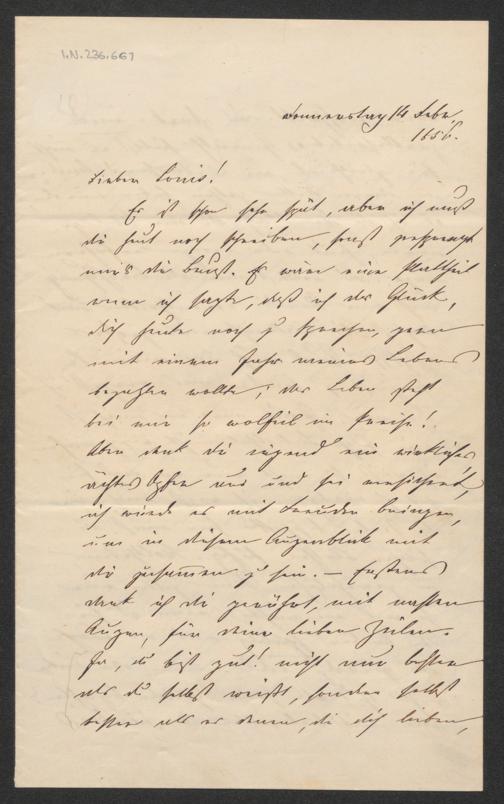 I.N. 236.667
Donnerstag 14 Febr.
1856.
Lieber Louis!
Es ist schon sehr spät, aber ich muß
dir heut noch schreiben, sonst zersprengt
mir's die Brust. Es wäre eine Plattheit
wenn ich sagte, daß ich das Glück,
dich heute noch zu sprechen, gern
mit einem Jahr meines Lebens
bezahlen wollte; das Leben steht
bei mir so wolfeil im Preise!
Aber denk dir irgend ein wirkliches
ächtes Opfer aus und sei versichert,
ich würde es mit Freuden bringen,
um in diesem Augenblick mit
dir zusammen zu sein. — Erstens
dank ich dir gerührt, mit nassen
Augen, für deine lieben Zeilen.
Ja, du bist gut! nicht nur besser
als du selbst weißt, sondern selbst
besser als es denen, die dich lieben,